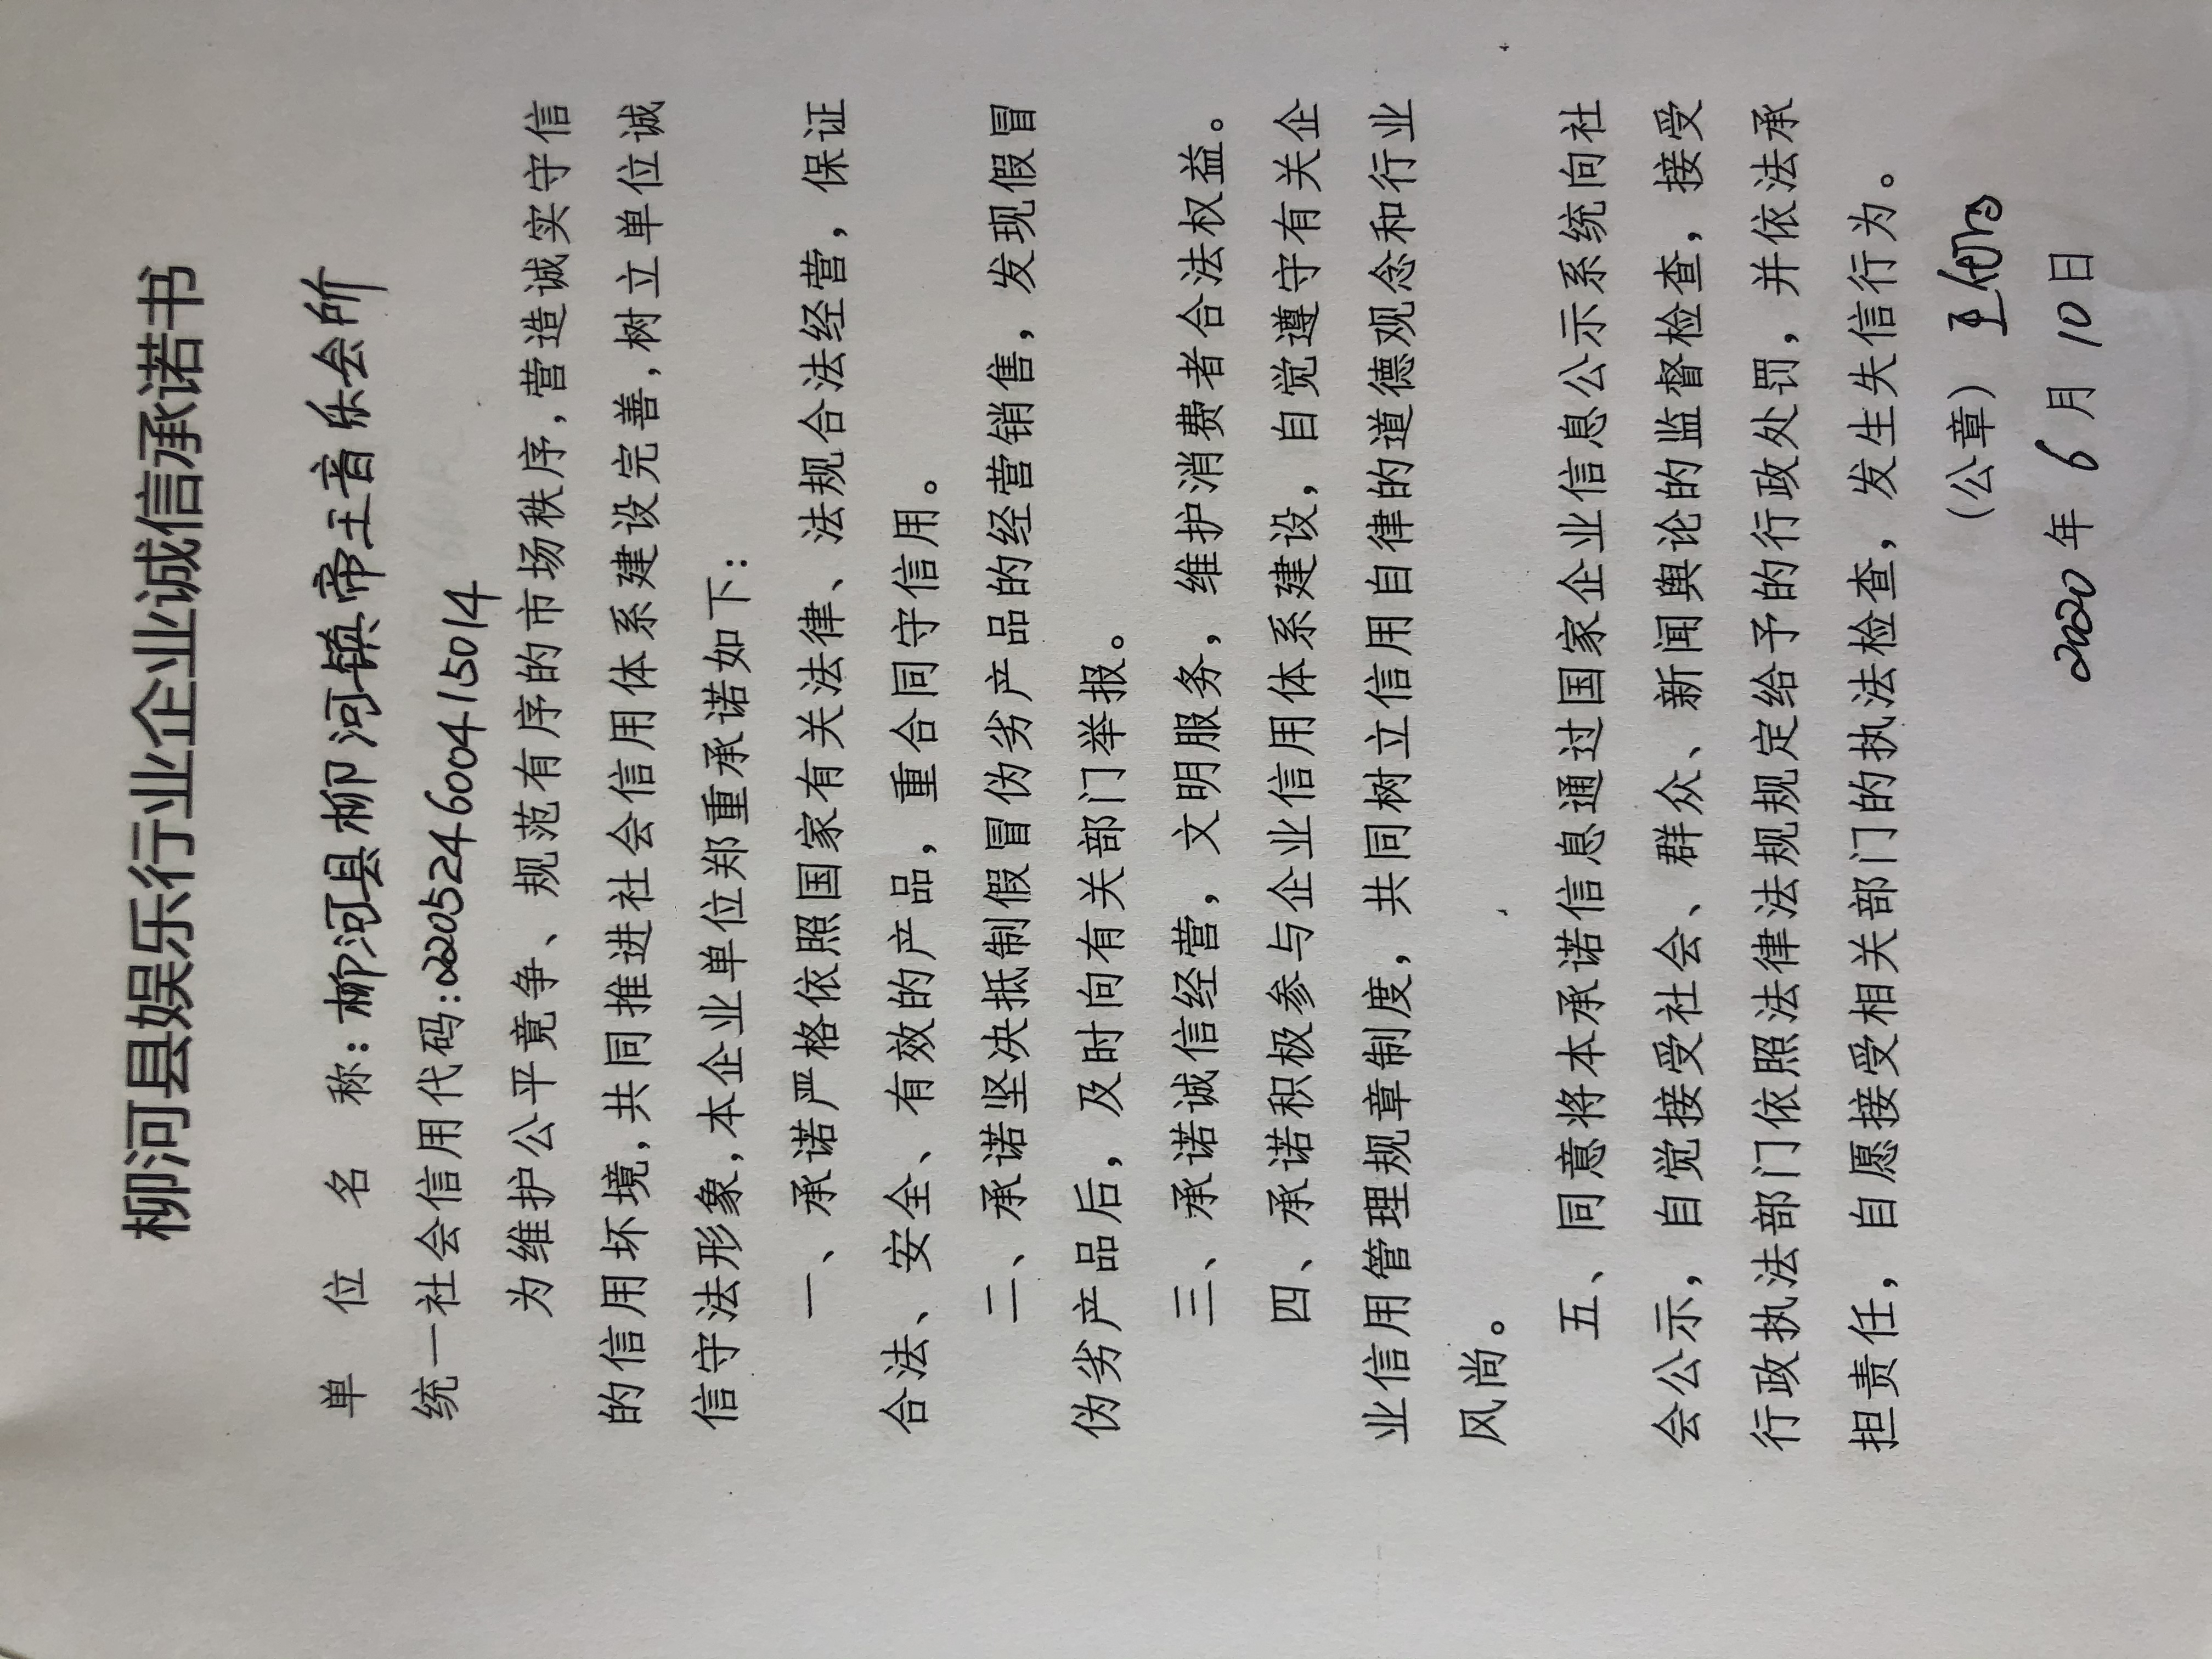 柳河县娱乐行业企业诚信承诺书
单位名称：柳河县柳河镇帝王音乐会所
统一社会信用代码：220524600415014
为维护公平竟争、规范有序的市场秩序，营造诚实守信
的信用坏境，共同推进社会信用体系建设完善，树立单位诚
信守法形象，本企业单位郑重承诺如下：
一、承诺严格依照国家有关法律、法规合法经营，保证
合法、安全、有效的产品，重合同守信用。
二、承诺坚决抵制假冒伪劣产品的经营销售，发现假冒
伪劣产品后，及时向有关部门举报。
三、承诺诚信经营，文明服务，维护消费者合法权益。
四、承诺积极参与企业信用体系建设，自觉遵守有关企
业信用管理规章制度，共同树立信用自律的道德观念和行业
风尚。
五、同意将本承诺信息通过国家企业信息公示系统向社
会公示，自觉接受社会、群众、新闻舆论的监督检查，接受
行政执法部门依照法律法规规定给予的行政处罚，并依法承
担责任，自愿接受相关部门的执法检查，发生失信行为。
（公章）王
2020年6月10日